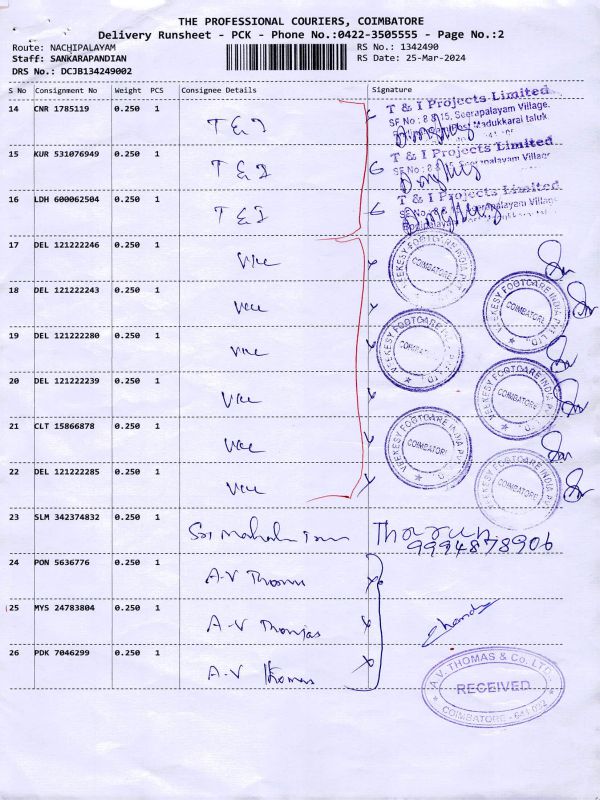 THE PROFESSIONAL COURIERS, COIMBATORE
Delivery Runsheet - PCK - Phone No.:0422-3505555 - Page No.:2
Route: NACHIPALAYAM RS No.: 1342490
Staff: SANKARAPANDIAN RS Date: 25-Mar-2024
DRS No.: DCJB134249002
S No Consignment No Weight PCS Consignee Details Signature
14 CNR 1785119 0.250 1 T & I
T & I Projects Limited
SF No : 8 & 15, Seerapalayam Village,
Madukkarai taluk
15 KUR 531076949 0.250 1 T & I
T & I Projects Limited
SF No : 8 & 15, Seerapalayam Village
16 LDH 600062504 0.250 1 T & I
T & I Projects Limited
SF No : 8 & 15, Seerapalayam Village
17 DEL 121222246 0.250 1 Vee
VEEKESY FOOTCARE INDIA PVT. LTD
COIMBATORE
18 DEL 121222243 0.250 1 Vee
VEEKESY FOOTCARE INDIA PVT. LTD
COIMBATORE
19 DEL 121222280 0.250 1 Vee
VEEKESY FOOTCARE INDIA PVT. LTD
COIMBATORE
20 DEL 121222239 0.250 1 Vee
VEEKESY FOOTCARE INDIA PVT. LTD
COIMBATORE
21 CLT 15866878 0.250 1 Vee
VEEKESY FOOTCARE INDIA PVT. LTD
COIMBATORE
22 DEL 121222285 0.250 1 Vee
VEEKESY FOOTCARE INDIA PVT. LTD
COIMBATORE
23 SLM 342374832 0.250 1 Sri Tharun
9994878906
24 PON 5636776 0.250 1 A.V Thomas
25 MYS 24783804 0.250 1 A-V Thomas
26 PDK 7046299 0.250 1 A.V Thomas
A.V. THOMAS & Co. LTD.,
RECEIVED
COIMBATORE - 641 032